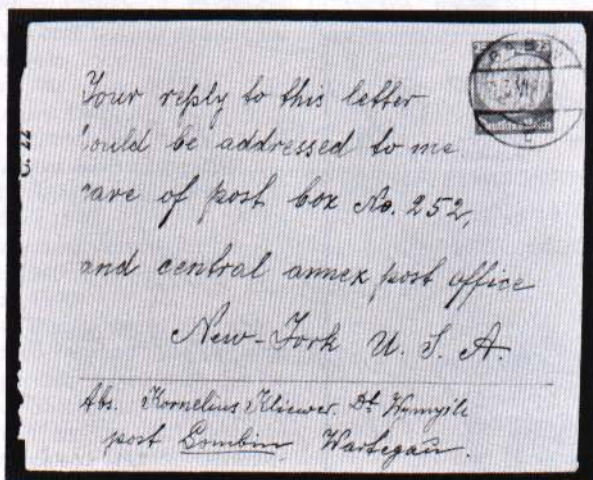 Your reply to this letter
ould be addressed to me
are of post box No. 252,
and central annex post office
New-York U. S. A.
Abs. Kornelius Kliewer. Dt. Wymyśle
post Gombin Wartegau.
Deutsches Reich
C. 22